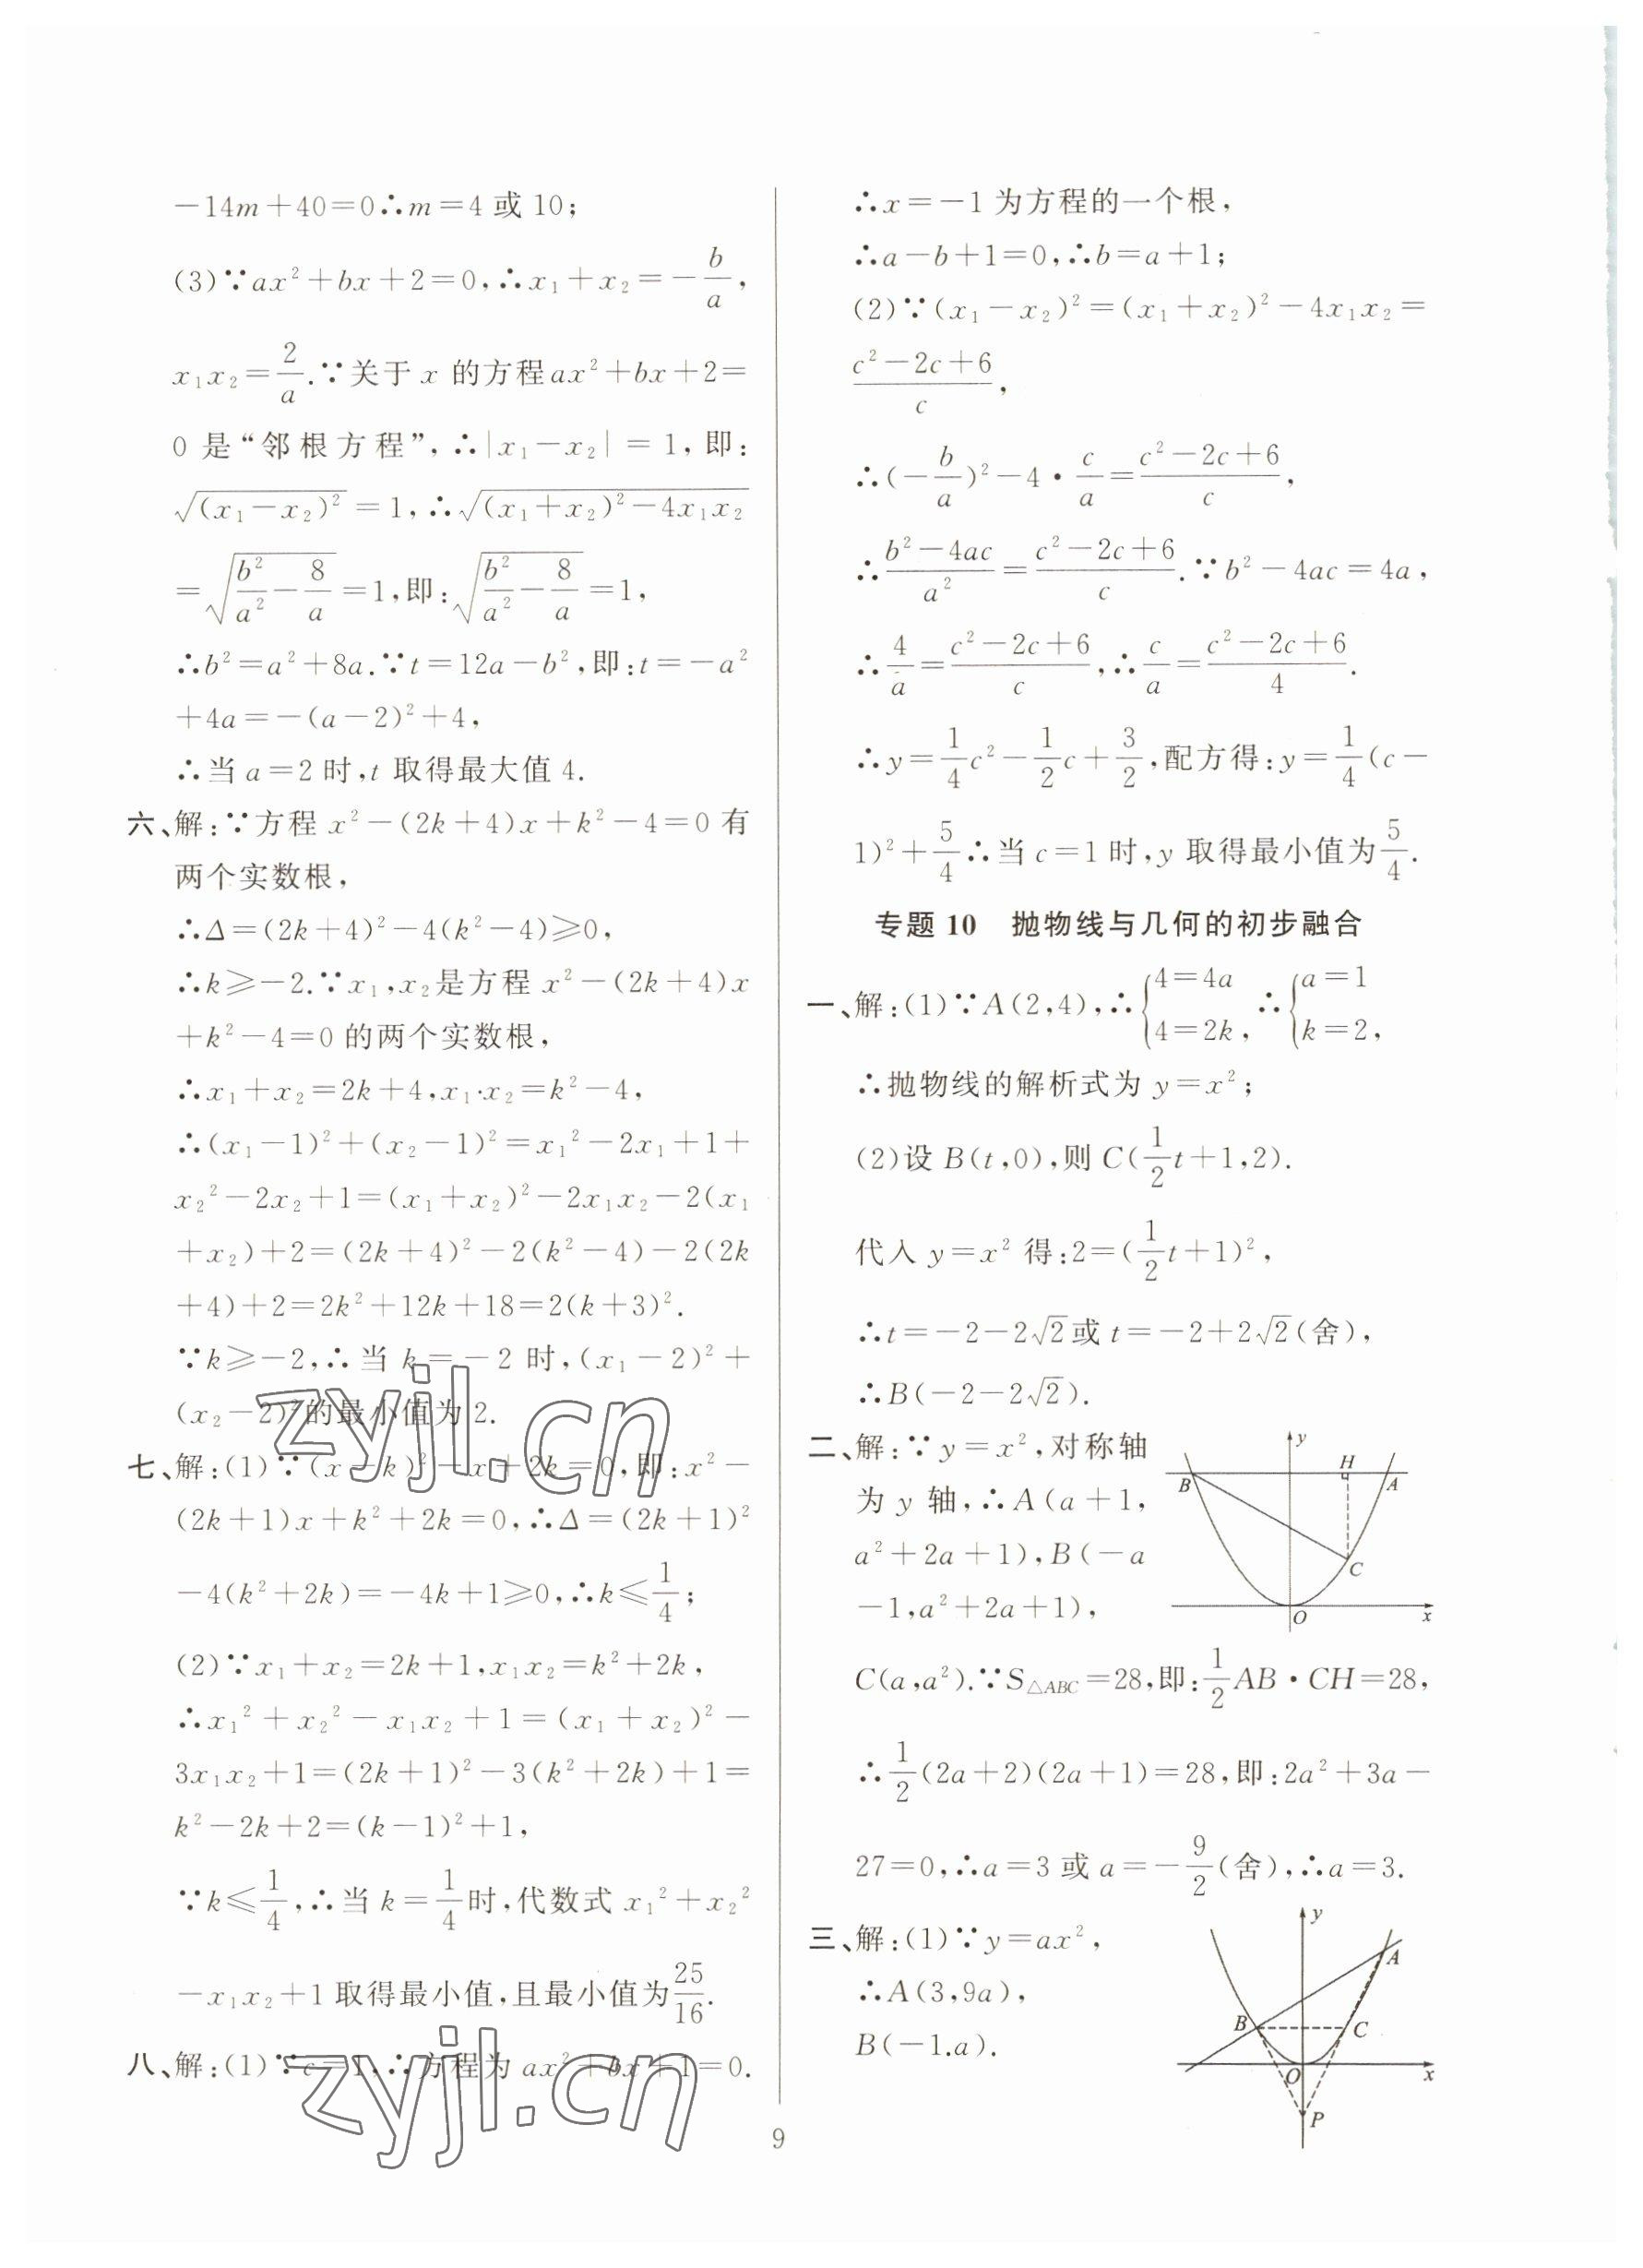 －14m＋40＝0∴m＝4 或 10；
(3)∵ax²＋bx＋2＝0,∴x₁＋x₂＝－b/a,
x₁x₂＝2/a.∵关于 x 的方程ax²＋bx＋2＝
0 是“邻根方程”,∴|x₁－x₂|＝1,即：
√((x₁－x₂)²)＝1,∴√((x₁＋x₂)²－4x₁x₂)
＝√(b²/a²－8/a)＝1,即：√(b²/a²－8/a)＝1,
∴b²＝a²＋8a.∵t＝12a－b²,即：t＝－a²
＋4a＝－(a－2)²＋4,
∴当 a＝2 时,t 取得最大值 4.
六、解：∵方程 x²－(2k＋4)x＋k²－4＝0 有
两个实数根,
∴Δ＝(2k＋4)²－4(k²－4)≥0,
∴k≥－2.∵x₁,x₂是方程 x²－(2k＋4)x
＋k²－4＝0 的两个实数根,
∴x₁＋x₂＝2k＋4,x₁·x₂＝k²－4,
∴(x₁－1)²＋(x₂－1)²＝x₁²－2x₁＋1＋
x₂²－2x₂＋1＝(x₁＋x₂)²－2x₁x₂－2(x₁
＋x₂)＋2＝(2k＋4)²－2(k²－4)－2(2k
＋4)＋2＝2k²＋12k＋18＝2(k＋3)².
∵k≥－2,∴当 k＝－2 时,(x₁－2)²＋
(x₂－2)²的最小值为 2.
七、解：(1)∵(x－k)²－x＋2k＝0,即：x²－
(2k＋1)x＋k²＋2k＝0,∴Δ＝(2k＋1)²
－4(k²＋2k)＝－4k＋1≥0,∴k≤1/4；
(2)∵x₁＋x₂＝2k＋1,x₁x₂＝k²＋2k,
∴x₁²＋x₂²－x₁x₂＋1＝(x₁＋x₂)²－
3x₁x₂＋1＝(2k＋1)²－3(k²＋2k)＋1＝
k²－2k＋2＝(k－1)²＋1,
∵k≤1/4,∴当 k＝1/4时,代数式 x₁²＋x₂²
－x₁x₂＋1 取得最小值,且最小值为25/16.
八、解：(1)∵c＝1,∴方程为 ax²＋bx＋1＝0.
∴x＝－1 为方程的一个根,
∴a－b＋1＝0,∴b＝a＋1；
(2)∵(x₁－x₂)²＝(x₁＋x₂)²－4x₁x₂＝
(c²－2c＋6)/c,
∴(－b/a)²－4·c/a＝(c²－2c＋6)/c,
∴(b²－4ac)/a²＝(c²－2c＋6)/c.∵b²－4ac＝4a,
∴4/a＝(c²－2c＋6)/c,∴c/a＝(c²－2c＋6)/4.
∴y＝1/4c²－1/2c＋3/2,配方得：y＝1/4(c－
1)²＋5/4∴当 c＝1 时,y 取得最小值为5/4.
专题 10 抛物线与几何的初步融合
一、解：(1)∵A(2,4),∴{4＝4a 4＝2k, ∴{a＝1 k＝2,
∴抛物线的解析式为 y＝x²；
(2)设 B(t,0),则 C(1/2t＋1,2).
代入 y＝x² 得：2＝(1/2t＋1)²,
∴t＝－2－2√2或 t＝－2＋2√2(舍),
∴B(－2－2√2).
二、解：∵y＝x²,对称轴
为 y 轴,∴A(a＋1,
a²＋2a＋1),B(－a
－1,a²＋2a＋1),
y
H
B
A
C
O
x
C(a,a²).∵S△ABC＝28,即：1/2AB·CH＝28,
∴1/2(2a＋2)(2a＋1)＝28,即：2a²＋3a－
27＝0,∴a＝3 或 a＝－9/2(舍),∴a＝3.
三、解：(1)∵y＝ax²,
∴A(3,9a),
B(－1.a).
y
A
B
C
O
x
P
9
zyjl.cn
zyjl.cn